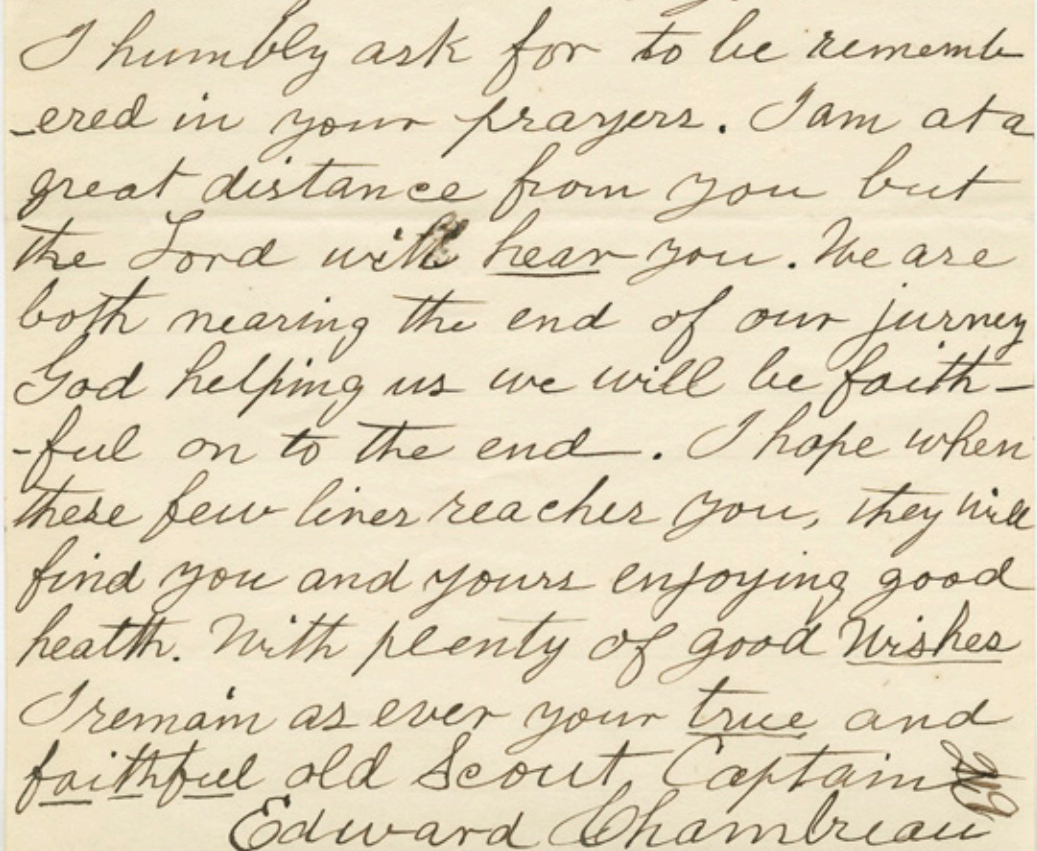 I humbly ask for to be rememb
-ered in your prayers. I am at a
great distance from you but
the Lord will hear you. We are
both nearing the end of our jurney
God helping us we will be faith-
-ful on to the end. I hope when
these few lines reaches you, they will
find you and yours enjoying good
health. With plenty of good Wishes
I remain as ever your true and
faithful old Scout, Captain
Edward Chambreau